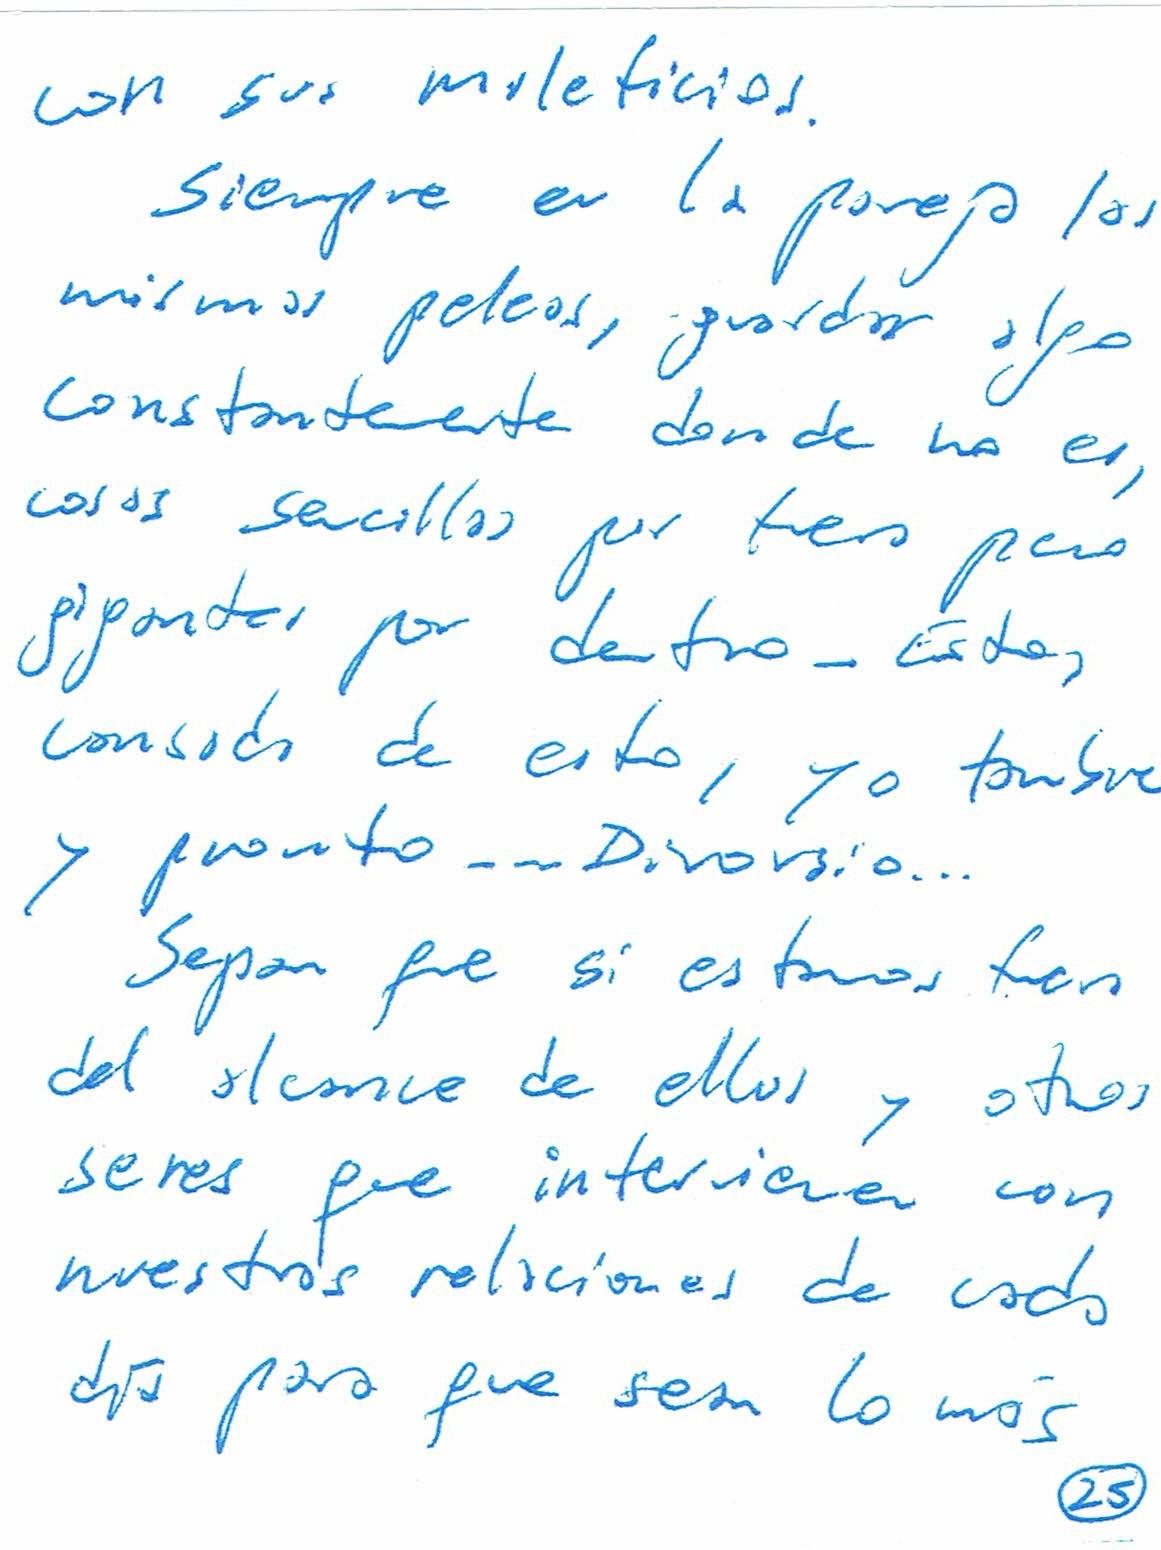 con sus maleficios.
Siempre en la pareja las
mismas peleas, guardar algo
constantemente donde no es,
cosas sencillas por fuera pero
gigantes por dentro - Estoy
cansada de esto, yo tambie
y pronto --- Divorsio...
Sepan que si estamos fuera
del alcance de ellos y otros
seres que intervienen con
nuestras relaciones de cada
día para que sean lo más
25